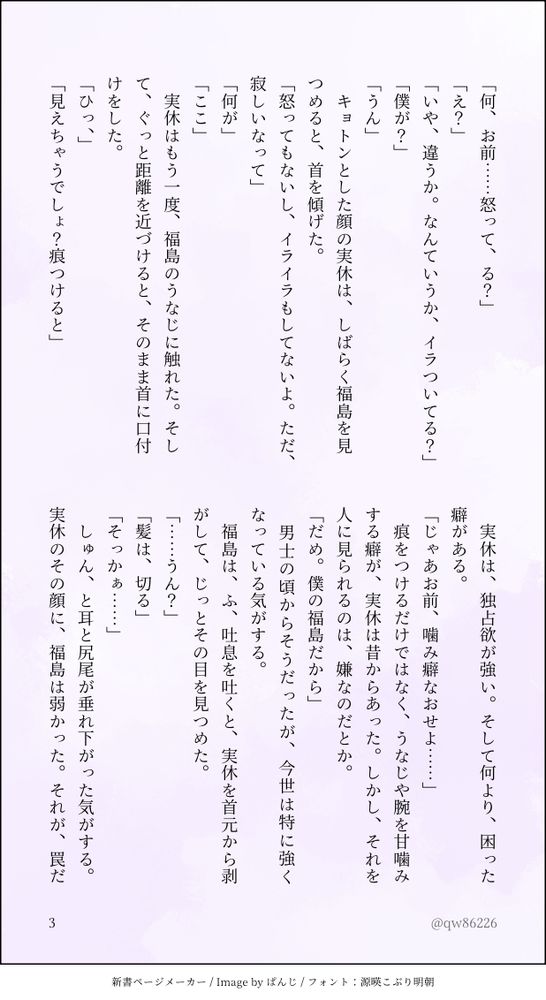 「何、お前……怒って、る？」
「え？」
「いや、違うか。なんていうか、イラついてる？」
「僕が？」
「うん」
　キョトンとした顔の実休は、しばらく福島を見
つめると、首を傾げた。
「怒ってもないし、イライラもしてないよ。ただ、
寂しいなって」
「何が」
「ここ」
　実休はもう一度、福島のうなじに触れた。そし
て、ぐっと距離を近づけると、そのまま首に口付
けをした。
「ひっ、」
「見えちゃうでしょ？痕つけると」
　実休は、独占欲が強い。そして何より、困った
癖がある。
「じゃあお前、噛み癖なおせよ……」
　痕をつけるだけではなく、うなじや腕を甘噛み
する癖が、実休は昔からあった。しかし、それを
人に見られるのは、嫌なのだとか。
「だめ。僕の福島だから」
　男士の頃からそうだったが、今世は特に強く
なっている気がする。
　福島は、ふ、吐息を吐くと、実休を首元から剥
がして、じっとその目を見つめた。
「……うん？」
「髪は、切る」
「そっかぁ……」
　しゅん、と耳と尻尾が垂れ下がった気がする。
実休のその顔に、福島は弱かった。それが、罠だ
3
@qw86226
新書ページメーカー / Image by ぱんじ / フォント：源暎こぶり明朝